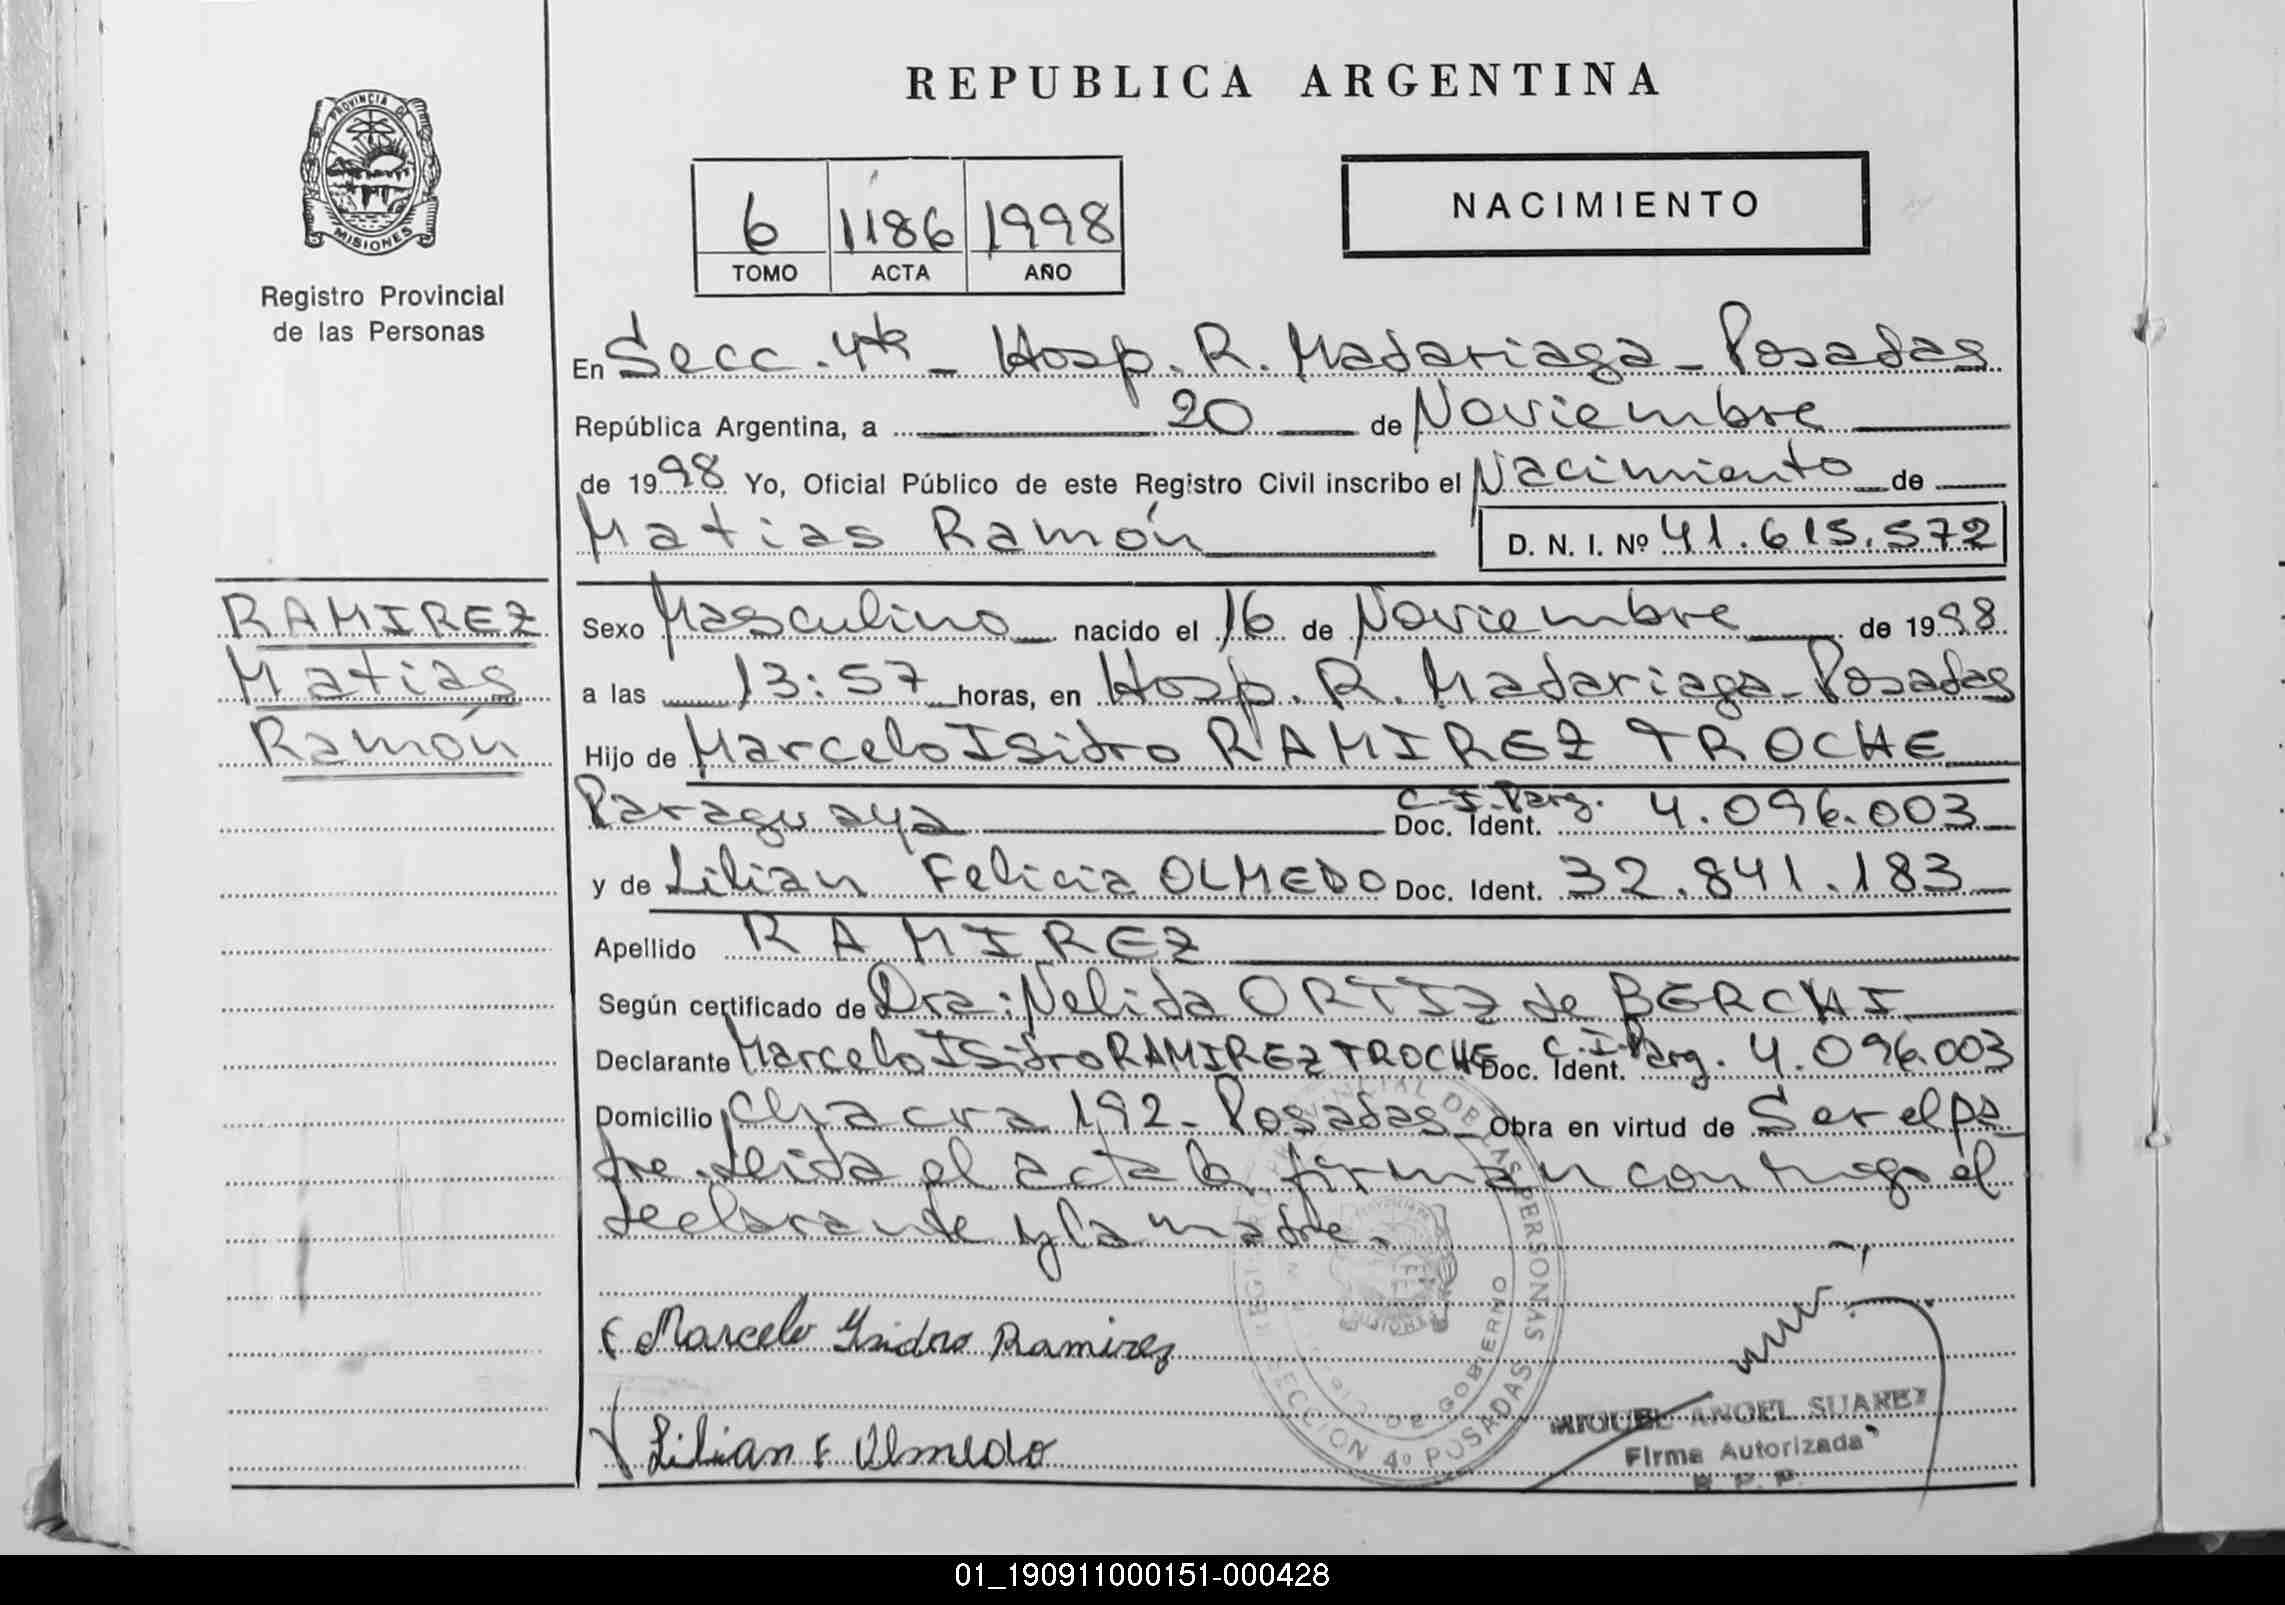 REPUBLICA ARGENTINA
PROVINCIA DE
MISIONES
Registro Provincial
de las Personas
6 1186 1998
TOMO ACTA AÑO
NACIMIENTO
En Secc. 4ta - Hosp. R. Madariaga - Posadas
República Argentina, a 20 de Noviembre
de 1998 Yo, Oficial Público de este Registro Civil inscribo el Nacimiento de
Matias Ramón D. N. I. Nº 41.615.572
RAMIREZ
Matias
Ramón
Sexo Masculino nacido el 16 de Noviembre de 1998
a las 13:57 horas, en Hosp. R. Madariaga - Posadas
Hijo de Marcelo Isidro RAMIREZ TROCHE
Paraguaya Doc. Ident. C.I. Parg. 4.096.003
y de Lilian Felicia OLMEDO Doc. Ident. 32.841.183
Apellido RAMIREZ
Según certificado de Dra: Nelida ORTIZ de BERCHI
Declarante Marcelo Isidro RAMIREZ TROCHE Doc. Ident. C.I. Parg. 4.096.003
Domicilio Chacra 192 - Posadas Obra en virtud de Ser el pa
dre. Leida el acta la firman conmigo el
declarante y la madre.
Marcelo Ysidro Ramirez
Lilian F Olmedo
PROVINCIAL DE LAS PERSONAS
DE GOBIERNO
SECCION 4º POSADAS
MIGUEL ANGEL SUAREZ
Firma Autorizada
R. P. P.
01_190911000151-000428